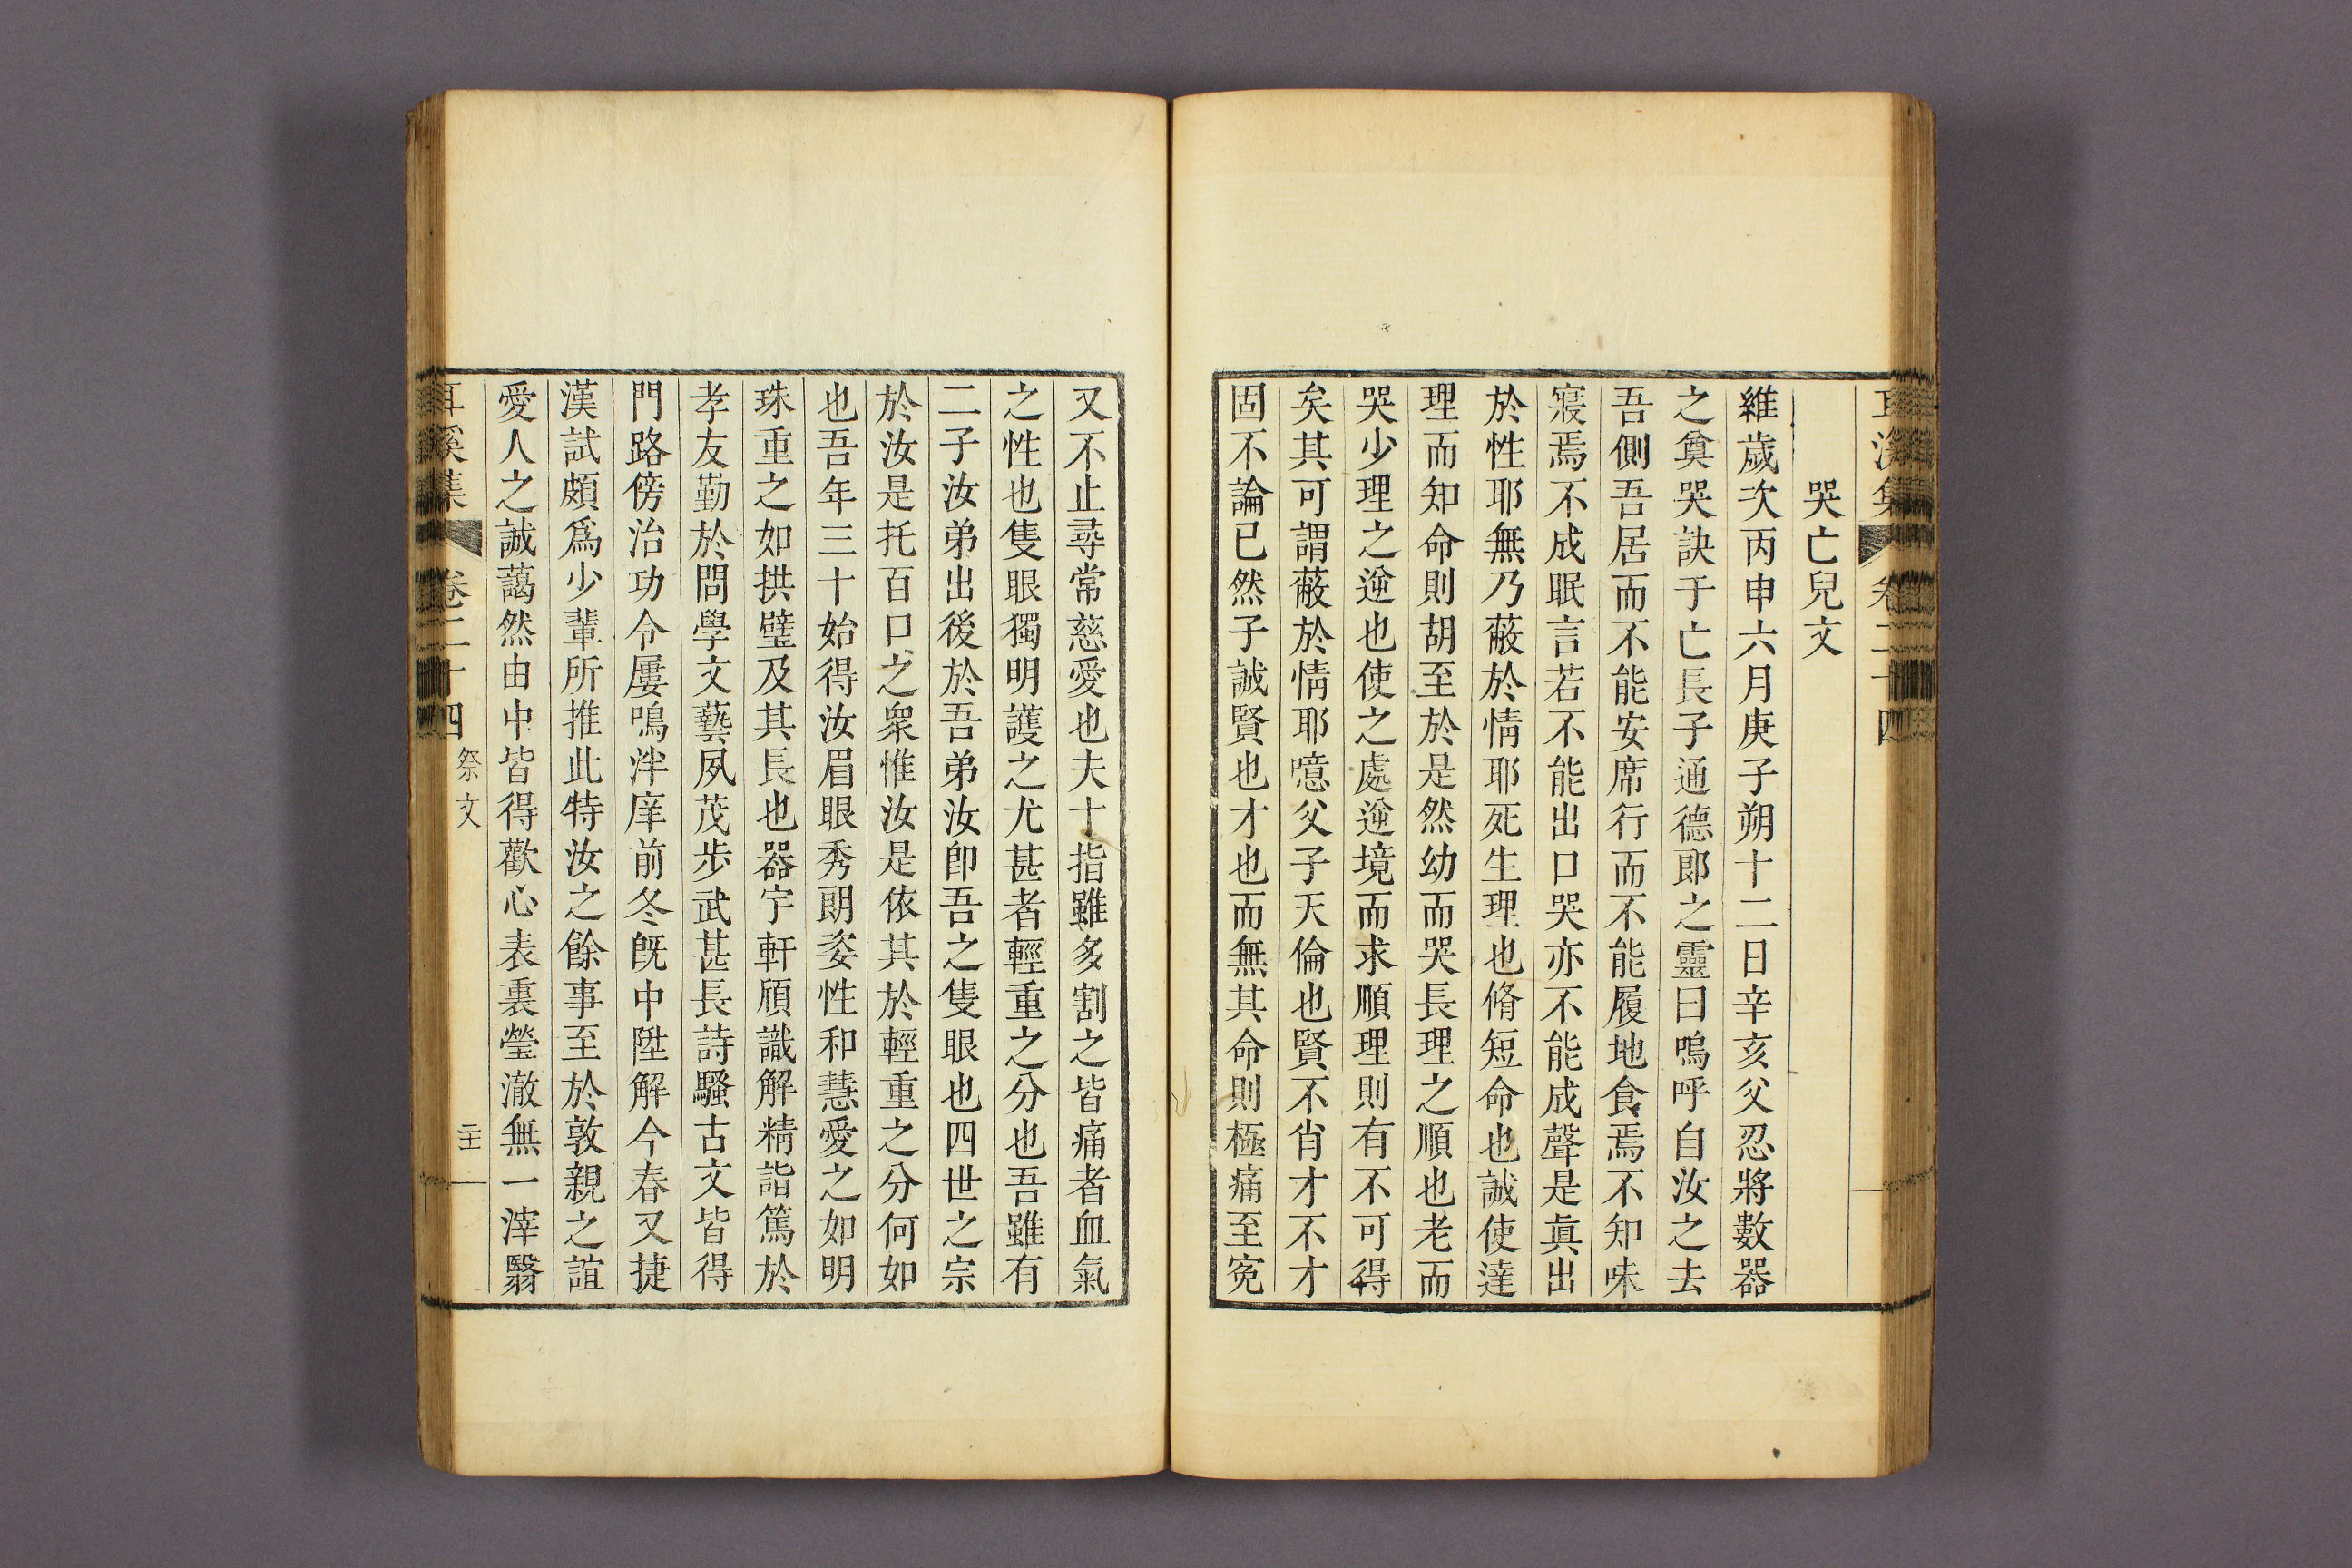 耳溪集 卷二十四
哭亡兒文
維歲次丙申六月庚子朔十二日辛亥父忍將數器
之奠哭訣于亡長子通德郎之靈曰嗚呼自汝之去
吾側吾居而不能安席行而不能履地食焉不知味
寢焉不成眠言若不能出口哭亦不能成聲是眞出
於性耶無乃蔽於情耶死生理也脩短命也誠使達
理而知命則胡至於是然幼而哭長理之順也老而
哭少理之逆也使之處逆境而求順理則有不可得
矣其可謂蔽於情耶噫父子天倫也賢不肖才不才
固不論已然子誠賢也才也而無其命則極痛至寃
又不止尋常慈愛也夫十指雖多割之皆痛者血氣
之性也隻眼獨明護之尤甚者輕重之分也吾雖有
二子汝弟出後於吾弟汝卽吾之隻眼也四世之宗
於汝是托百口之衆惟汝是依其於輕重之分何如
也吾年三十始得汝眉眼秀朗姿性和慧愛之如明
珠重之如拱璧及其長也器宇軒頎識解精詣篤於
孝友勤於問學文藝夙茂步武甚長詩騷古文皆得
門路傍治功令屢鳴泮庠前冬旣中陞解今春又捷
漢試頗爲少輩所推此特汝之餘事至於敦親之誼
愛人之誠藹然由中皆得歡心表裏瑩澈無一滓翳
耳溪集 卷二十四 祭文